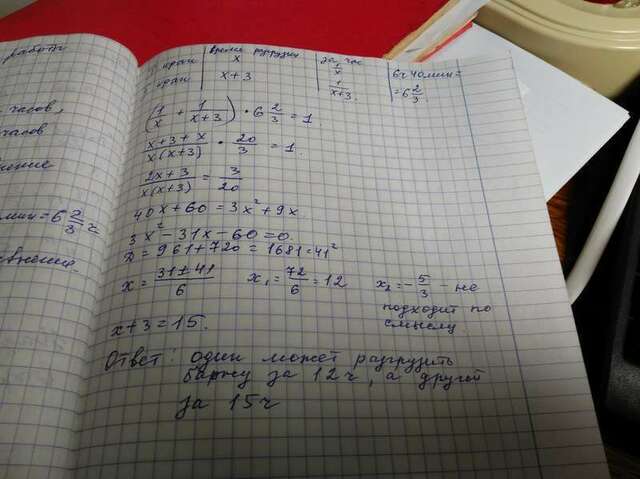 работы
часов,
часов
мин = 6 2/3 ч
кран | время разгрузки | за час | 6ч 40мин =
x | 1/x | = 6 2/3
кран | x+3 | 1/(x+3)
(1/x + 1/(x+3)) · 6 2/3 = 1.
(x+3+x)/(x(x+3)) · 20/3 = 1.
(2x+3)/(x(x+3)) = 3/20
40x+60 = 3x²+9x
3x² - 31x - 60 = 0
D = 961+720 = 1681 = 41²
x = (31±41)/6 x₁ = 72/6 = 12 x₂ = -5/3 - не
подходит по
смыслу.
x+3 = 15.
Ответ: один может разгрузить
баржу за 12 ч, а другой
за 15ч